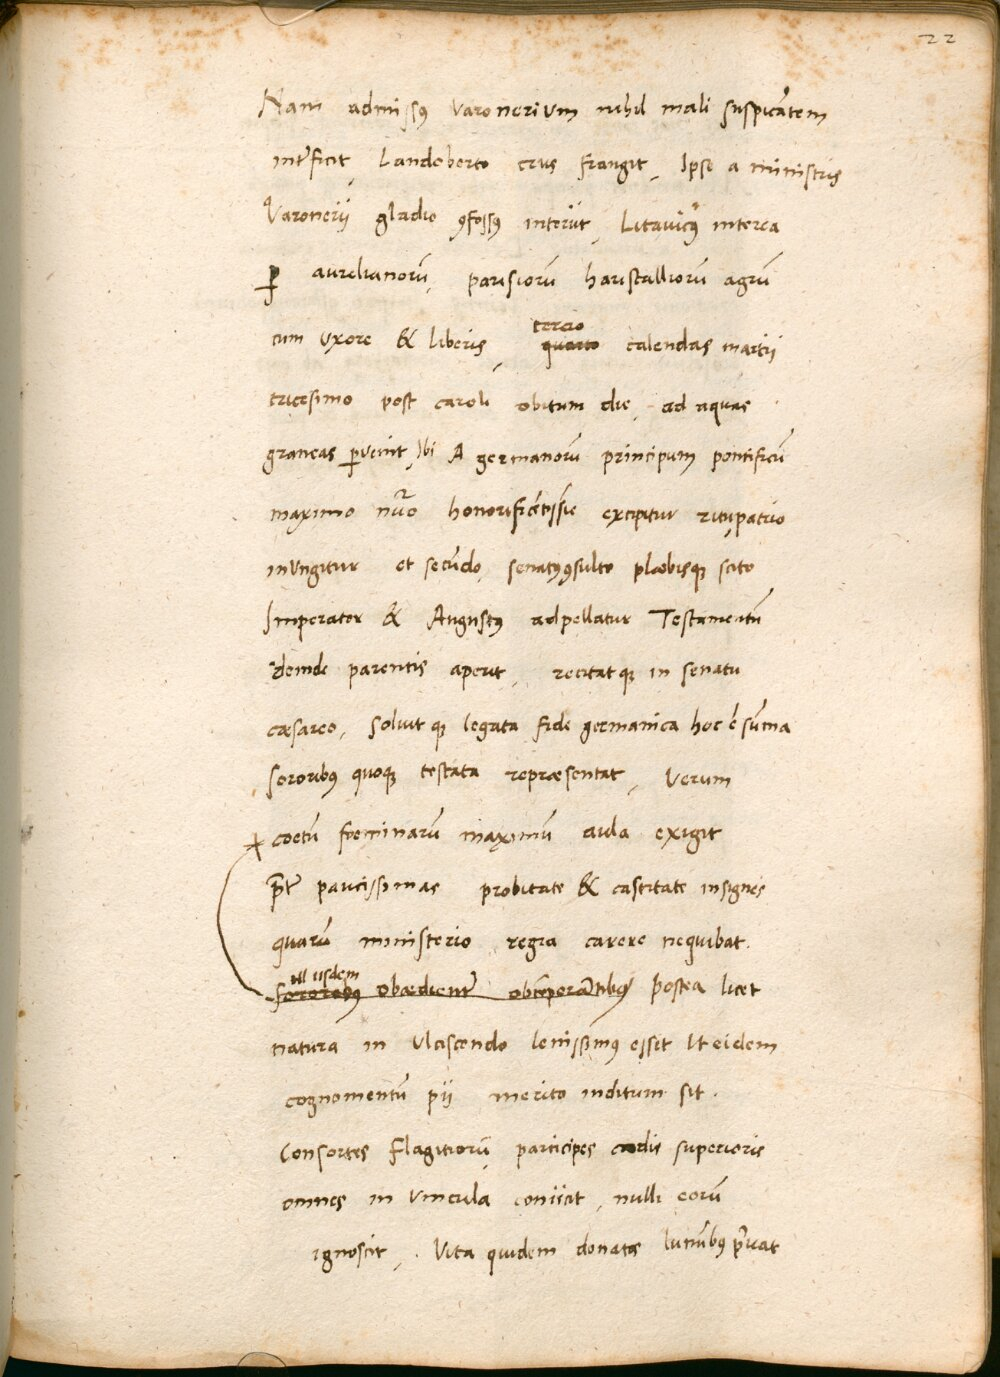 22
Nam admissꝰ Varonerium nihil mali suspicãtem
interficit, Landeberto crus frangit, Ipse a ministris
Varonerii gladio ꝯfossꝰ interiit, Litavicꝰ interea
ꝑ aurelianorũ, parisiorũ haristalliorũ agrũ
cum uxore & liberis, tercio quarto calendas martii
tricesimo post caroli obitum die, ad aquas
graneas ꝑvenit, Ibi A germanorũ principum pontificũ
maximo nr̃o honorificẽtissie excipitur ritu patrio
inungitur et secũdo, senatꝰꝯsulto plæbisqꝫ scito
Imperator & Augustꝰ adpellatur Testamentũ
deinde parentis aperit, recitatqꝫ in senatu
cæsareo, solvitqꝫ legata fide germanica hoc ẽ sũma
sororibꝰ quoqꝫ testata repræsentat, Verum
coetũ foeminarũ maximũ aula exigit
p̃ter paucissimas probitate & castitate insignes
quarũ ministerio regia carere nequibat.
iisdem
sororibꝰ obædienter obtẽperãtibꝰ postea licet
natura in ulciscendo lenissimꝰ esset Ut eidem
cognomentũ pii merito inditum sit.
Consortes flagitiorũ participes cædis superioris
omnes in vincula coniicit, nulli eorũ
ignoscit, Vita quidem donatos luminibꝰ privat